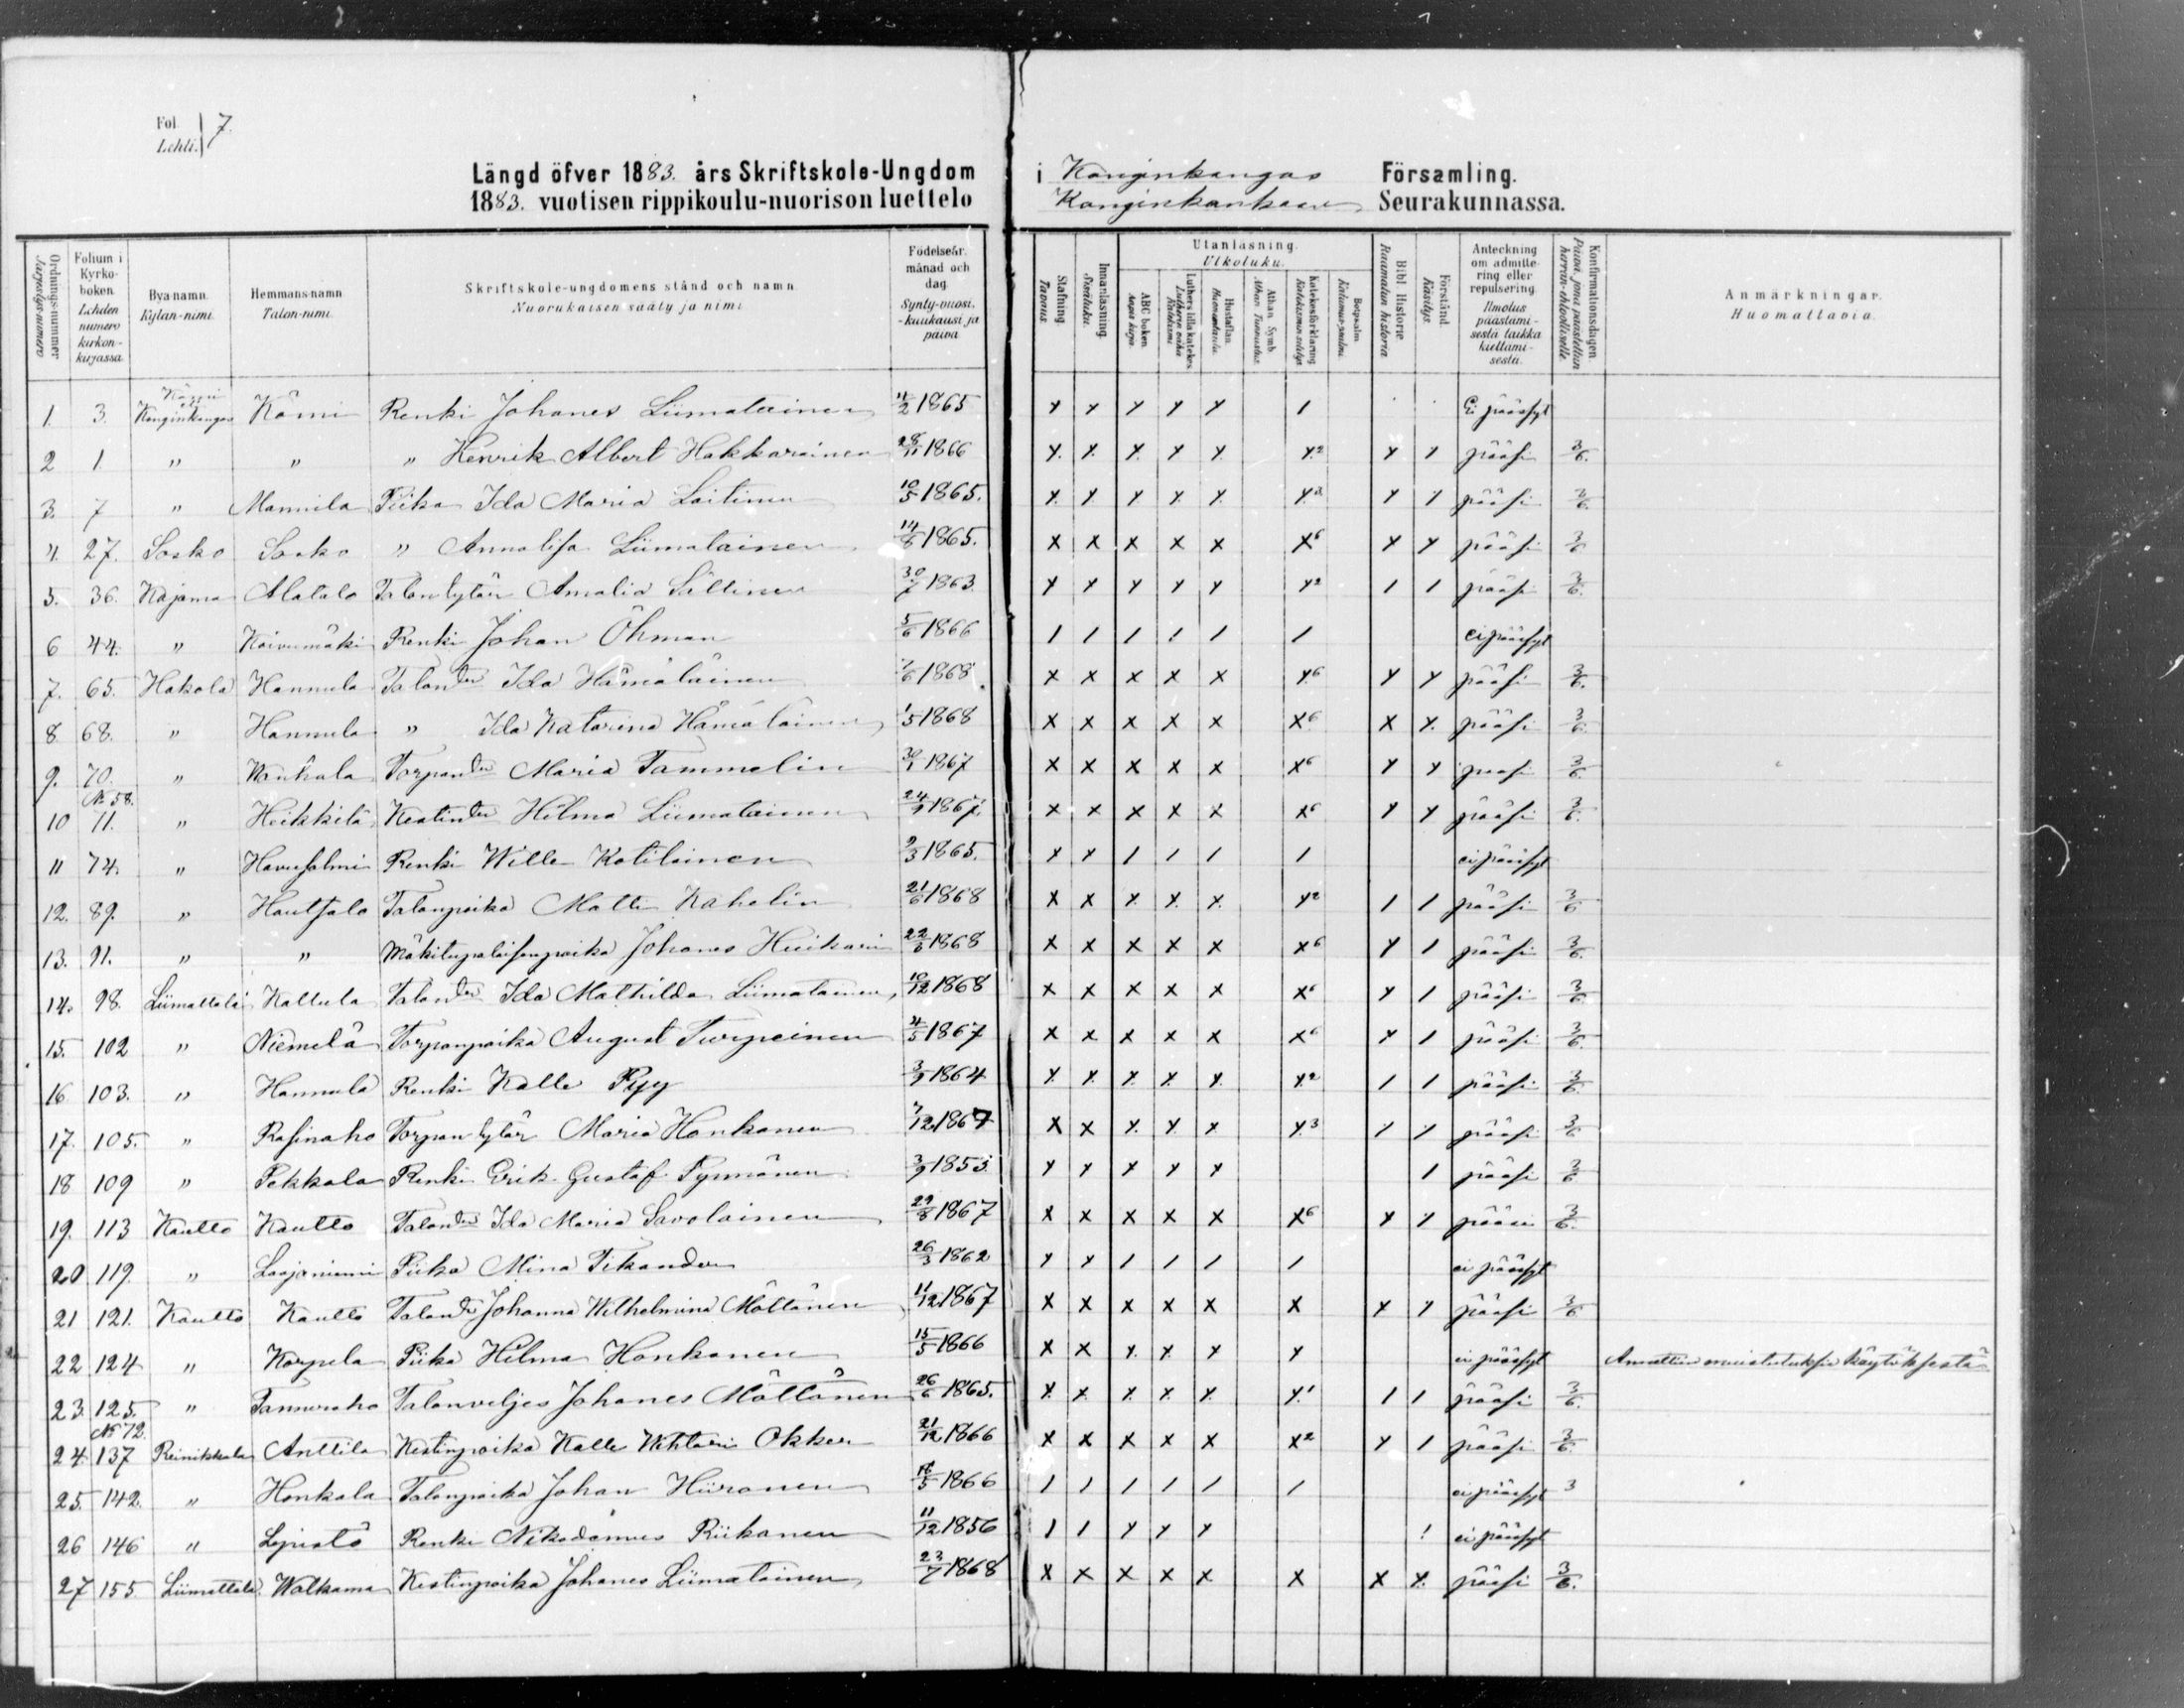 Fol. 7.
Lehti.
Längd öfver 1883. års Skriftskole-Ungdom i Konginkangas Församling.
1883. vuotisen rippikoulu-nuorison luettelo Konginkankaan Seurakunnassa.
Ordningsnummer Järjestys-numero
Folium i Kyrkoboken. Lehden numero kirkon-kirjassa.
Bya namn. Kylän-nimi.
Hemmans-namn Talon-nimi.
Skriftskole-ungdomens stånd och namn. Nuorukaisen sääty ja nimi
Födelseår, månad och dag. Synty-vuosi, -kuukausi ja päivä
Stafning. Tavuus.
Innanläsning. Sisäluku.
Utanläsning. Ulkoluku.
ABC boken. Aapis kirja.
Luthers lilla katekes. Lutherin vähä katekismi
Hustaflan. Huoneentaulu.
Athan. Symb. Athan. Tunnustus.
Katekesförklaring Katekismun selitys
Botpsalm. Katumus-psalmi.
Bibl. Historie Raamatun historia
Förstånd. Käsitys.
Anteckning om admittering eller repulsering. Ilmotus päästämisestä taikka kieltämisestä.
Konfirmationsdagen. Päivä, jona päästettiin herran-ehtoolliselle.
Anmärkningar. Huomattavia.
1. 3. Konginkangas Kömi Renki Johanes Liimatainen 4/2 1865 x x x x x / Ei päässyt
2 1. " " " Henrik Albert Hakkarainen 28/11 1866 x x x x x x2 x / pääsi 3/6.
3. 7 " Mannila Piika Ida Maria Laitinen 10/5 1865. x x x x x x3 x x pääsi 3/6.
4. 27. Sosko Sosko " Annalisa Liimatainen 14/8 1865. x x x x x x6 x x pääsi 3/6
5. 36. Kajama Alatalo Talon tytär Amalia Sillinen 30/7 1863 x x x x x x2 / / pääsi 3/6.
6 44. " Koivumäki Renki Johan Öhman 5/6 1866 / / / / / / ei päässyt
7. 65. Hakola Hannula Talon dtr Ida Hämäläinen 7/6 1868 x x x x x x6 x x pääsi 3/6.
8 68. " Hannula " Ida Katarina Hämäläinen 1/5 1868 x x x x x x6 x x pääsi 3/6.
9. 70. " Kankala Torpan dtr Maria Tammelin 30/1 1867 x x x x x x6 x x pääsi 3/6
10 No 58. 71. " Heikkilä Kestin dtr Hilma Liimatainen 24/9 1867. x x x x x x6 x x pääsi 3/6.
11 74. " Havusalmi Renki Wille Kotilainen 9/3 1865. x x / / / / ei päässyt
12. 89. " Hautsalo Talonpoika Matti Kahelin 21/6 1868 x x x x x x2 / / pääsi 3/6
13. 91. " " Mäkitupalaisenpoika Johanes Huikari 22/6 1868 x x x x x x6 x / pääsi 3/6.
14. 98. Liimattala Kallula Talon dtr Ida Mathilda Liimatainen, 10/12 1868 x x x x x x6 x / pääsi 3/6.
15. 102 " Niemelä Torpanpoika August Turpeinen 4/5 1867 x x x x x x6 x / pääsi 3/6.
16 103. " Hannula Renki Kalle Pyy 3/9 1864 x x x x x x2 / / pääsi 3/6
17. 105. " Rasinaho Torpan tytär Maria Honkonen 7/12 1867 x x x x x x3 x x pääsi 3/6
18 109 " Pekkala Renki Erik Gustaf Tynnönen 3/9 1853 x x x x x / pääsi 3/6
19. 113 Kautto Kautto Talon dtr Ida Maria Savolainen 29/8 1867 x x x x x x6 x x pääsi 3/6.
20 119. " Laajaniemi Piika Mina Tikander 26/3 1862 x x / / / / ei päässyt
21 121. Kautto Kautto Talon dtr Johanna Wilhelmina Möttönen 11/12 1867 x x x x x x x x pääsi 3/6
22 124 " Korpela Piika Hilma Honkonen 15/5 1866 x x x x x x ei päässyt Annettiin muistutuksia käytöksestä
23. 125. " Tannuraho Talonveljes Johanes Möttönen 26/6 1865. x x x x x x1 / / pääsi 3/6.
24. No 72. 137 Reinikkala Anttila Kestinpoika Kalle Wihtori Okker 21/12 1866 x x x x x x2 x / pääsi 3/6.
25. 142. " Honkola Talonpoika Johan Hiironen 18/5 1866 / / / / / / ei päässyt 3
26 146 " Lepistö Renki Nikodemus Riikonen 11/12 1856 / / x x x ! ei päässyt
27 155. Liimattala. Walkama Kestinpoika Johanes Liimatainen 23/7 1868 x x x x x x x x pääsi 3/6.